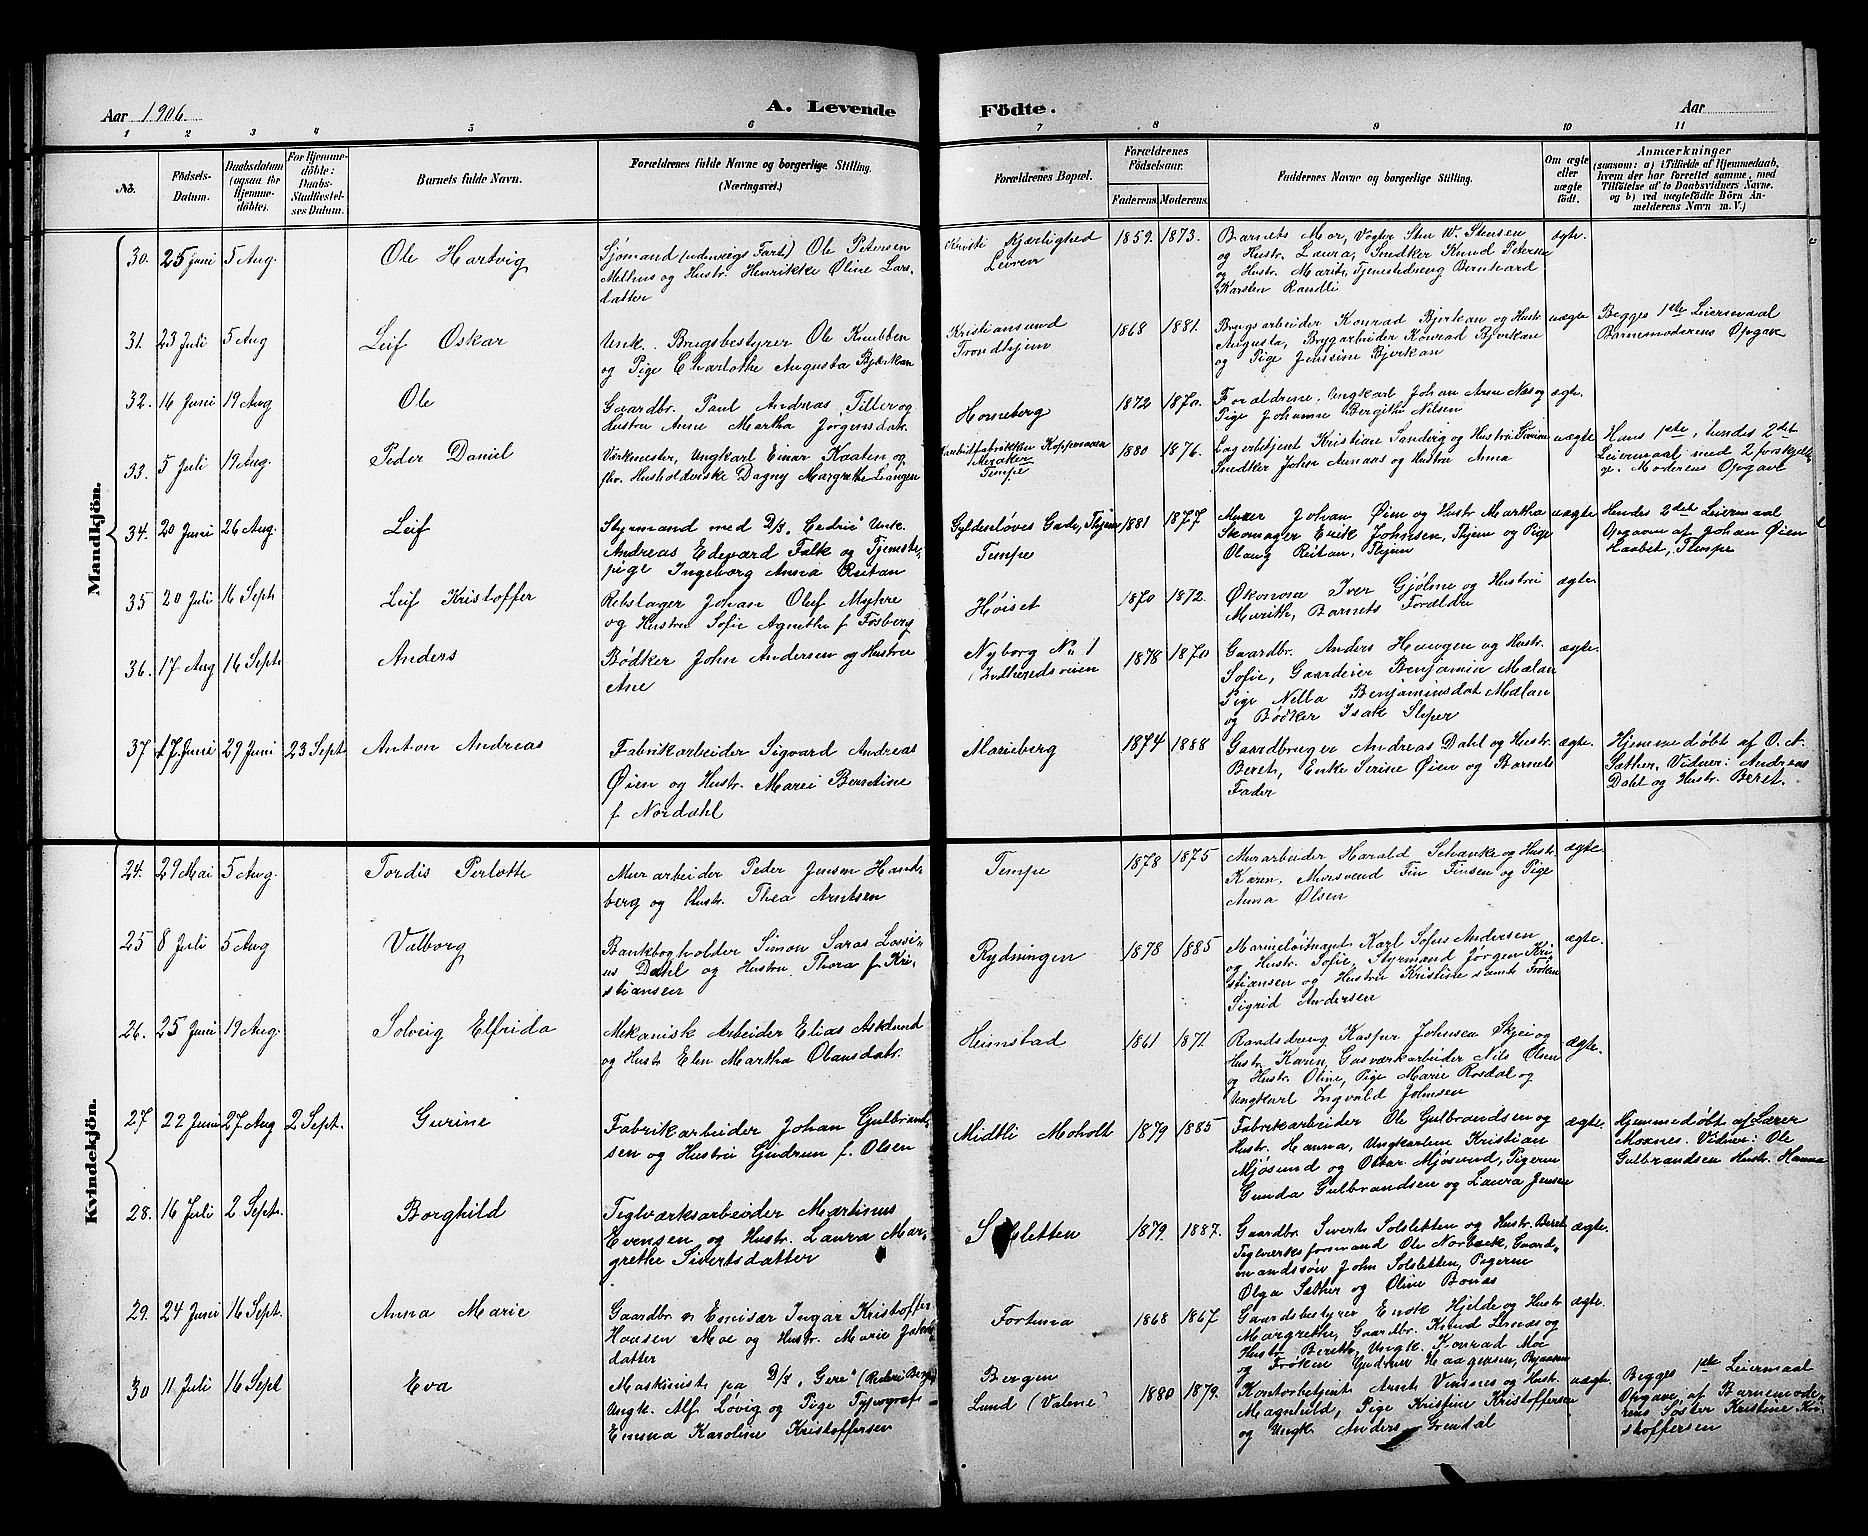 Aar 1906.
A. Levende Födte.
Aar
1 2 3 4 5 6 7 8 9 10 11
No.
Födsels-Datum.
Daabsdatum (ogsaa for Hjemmedöbte).
For Hjemmedöbte: Daabs-Stadfæstelses Datum.
Barnets fulde Navn.
Forældrenes fulde Navne og borgerlige Stilling. (Næringsvei.)
Forældrenes Bopæl.
Forældrenes Födselsaar.
Faderens. Moderens.
Faddernes Navne og borgerlige Stilling.
Om ægte eller uægte födt.
Anmærkninger
(saasom: a) i Tilfælde af Hjemmedaab, hvem der har forrettet samme, med Tilföielse af to Daabsvidners Navne, og b) ved uægtefödte Börn Anmelderens Navn m. V.)
Mandkjön.
30. 25 juni 5 Aug. Ole Hartvig
Sjømand (udenrigs Fart) Ole Petersen
Melhus og Hustr. Henrikke Oline Lars-
datter
Kristi Kjærlighed
Leiren
1859. 1873.
Barnets Mor, Vogter Sten W. Stensen
og Hustr. Laura, Snedker Knud Petersen
og Hustr. Marit, Tjenestedreng Bernhard
Karsten Randli
ægte.
31. 23 Juli 5 Aug Leif Oskar
Unk. Brugsbestyrer Ole Knubben
og Pige Charlotte Augusta Bjerkan
Kristiansund
Trondhjem
1868 1881.
Brugsarbeider Konrad Bjerkan og Hustr.
Augusta, Brygarbeider Konrad Bjerkan
og Pige Jensine Bjerkan
uægte
Begges 1ste Leiermaal
Barnemoderens Opgave
32. 16 Juni 19 Aug Ole
Gaardbr. Paul Andreas Tiller og
Hustru Anne Martha Jørgensdatr.
Horneberg
1872 1870.
Forældrene, Ungkarl Johan Arne Næs og
Pige Johanne Bergithe Nilsen
ægte.
33. 5 Juli 19 Aug. Peder Daniel
Værkmester, Ungkarl Einar Kaaten og
fhv. Husholderske Dagny Margrethe Langen
Karbidfabrikken Kopperaaen
Meraker
Tempe
1880 1876.
Lagerbetjent Kristian Sandvig og Hustru Severine
Snedker John Aunaas og Hustru Anna
uægte
Hans 1ste, hendes 2det
Leiermaal med 2 forskjelli-
ge. Moderens Opgave
34. 20 Juni 26 Aug. Leif
Styrmand med D/S. "Cedric" Unk.
Andreas Edevard Falk og Tjeneste-
pige Ingeborg Anna Ristan
Gyldenløves Gade, Thjem
Tempe
1881 1877
Murer Johan Øien og Hustr. Martha
Skomager Erik Johnsen, Thjem og Pige
Olaug Ristan, Thjem
uægte
Hendes 2det Leiermaal
Opgaven af Johan Øien
Haabet, Tempe
35 20 Juli 16 Sept Leif Kristoffer
Rebslager Johan Oluf Myhre
og Hustru Sofie Agnethe f. Fosberg
Høiset
1870 1872.
Økonom Iver Gjølme og Hustru
Marith, Barnets Forældre
ægte.
36. 17 Aug 16 Sept. Anders
Bødker John Andersen og Hustru
Ane
Nyborg No 1
Indherredsveien
1878 1870
Gaardbr. Anders Haugen og Hustr.
Sofie, Gaardeier Benjamin Mælan
Pige Nella Benjaminsdat Mælan
og Bødker Isak Sleper
ægte.
37. 17. Juni 29 Juni 23 Sept. Anton Andreas
Fabrikarbeider Sigvard Andreas
Øien og Hustr. Marei Berntine
f. Nordahl
Marieberg
1874 1888
Gaardbruger Andreas Dahl og Hustr.
Beret, Enke Serine Øien og Barnets
Fader
ægte.
Hjemmedøbt af O. A.
Sæther, Vidner: Andreas
Dahl og Hustr. Beret.
Kvindekjön.
24. 29 Mai 5 Aug. Tordis Perlotte
Murarbeider Peder Jensen Hank-
berg og Hustr. Thea Arntsen
Tempe
1878 1875
Murarbeider Harald Schanke og Hustr.
Karen, Mursvend Fin Finsen og Pige
Anna Olsen
ægte.
25 8 Juli 5 Aug Valborg
Bankbogholder Simon Saras Lossi-
us Dahl og Hustru Thora f. Kri-
stiansen
Rydningen
1878 1885
Marineløitnant Karl Sofus Andersen
og Hustr. Sofie, Styrmand Jørgen Kri-
stiansen og Hustru Kristine samt Frøken
Sigrid Andersen
ægte.
26. 25 Juni 19 Aug. Solveig Elfrida
Mekanisk Arbeider Elias Asklund
og Hustr. Elen Martha Olausdatr.
Heimstad
1861 1871
Raadsdreng Kasper Johnsen Skjei og
Hustr. Karen, Gasværkarbeider Nils Olsen
og Hustr. Oline, Pige Marie Rosdal og
Ungkarl Ingvald Johnsen
ægte.
27. 22 Juni 27 Aug 2 Sept. Gurine
Fabrikarbeider Johan Gulbrand-
sen og Hustru Gudrun f. Olsen
Midtli Moholt
1879 1885
Fabrikarbeider Ole Gulbrandsen og
Hustr. Hanna, Ungkarlene Kristian
Mjøsund og Ottar Mjøsund, Pigerne
Gunda Gulbrandsen og Laura Jensen
ægte.
Hjemmedøbt af Lærer
Moxnes. Vidner: Ole
Gulbrandsen Hustr. Hanna
28. 16 Juli 2 Sept. Borghild
Teglværksarbeider Martinus
Evensen og Hustr. Laura Mar-
grethe Sivertsdatter
Solsletten
1879. 1887.
Gaardbr. Sivert Solsletten og Hustr. Beret
Teglverksformand Ole Norbæck, Gaard-
mandssøn John Solsletten, Pigerne
Olga Sæther og Oline Bonas
ægte.
29. 24 Juni 16 Sept. Anna Marie
Gaardbr. & Emisær Ingar Kristoffer
Haasen Moe og Hustr. Marie Jakob-
datter
Fortuna
1868 1867
Gaardsbestyrer Enok Hjelde og Hustr
Margrethe, Gaardbr. Knud Lunds og
Hustr. Bereth, Ungk. Konrad Moe
og Frøken Gudrun Haagensen, Byaasen
ægte.
30 11 Juli 16 Sept Eva
Maskinist paa D/S. "Gere" (Rederi Bergen)
Ungk. Alf Løvig og Pige Typograf
Emma Karoline Kristoffersen
Bergen
Lund (Valene)
1880 1879.
Kontorbetjent Arnt Vensnes og Hustr.
Magnhild, Pige Kristine Kristoffersen
og Ungk. Anders Grendal
uægte.
Begges 1ste Leiermaal
Opgave af Barnemode-
rens Søster Kristine Kri-
stoffersen